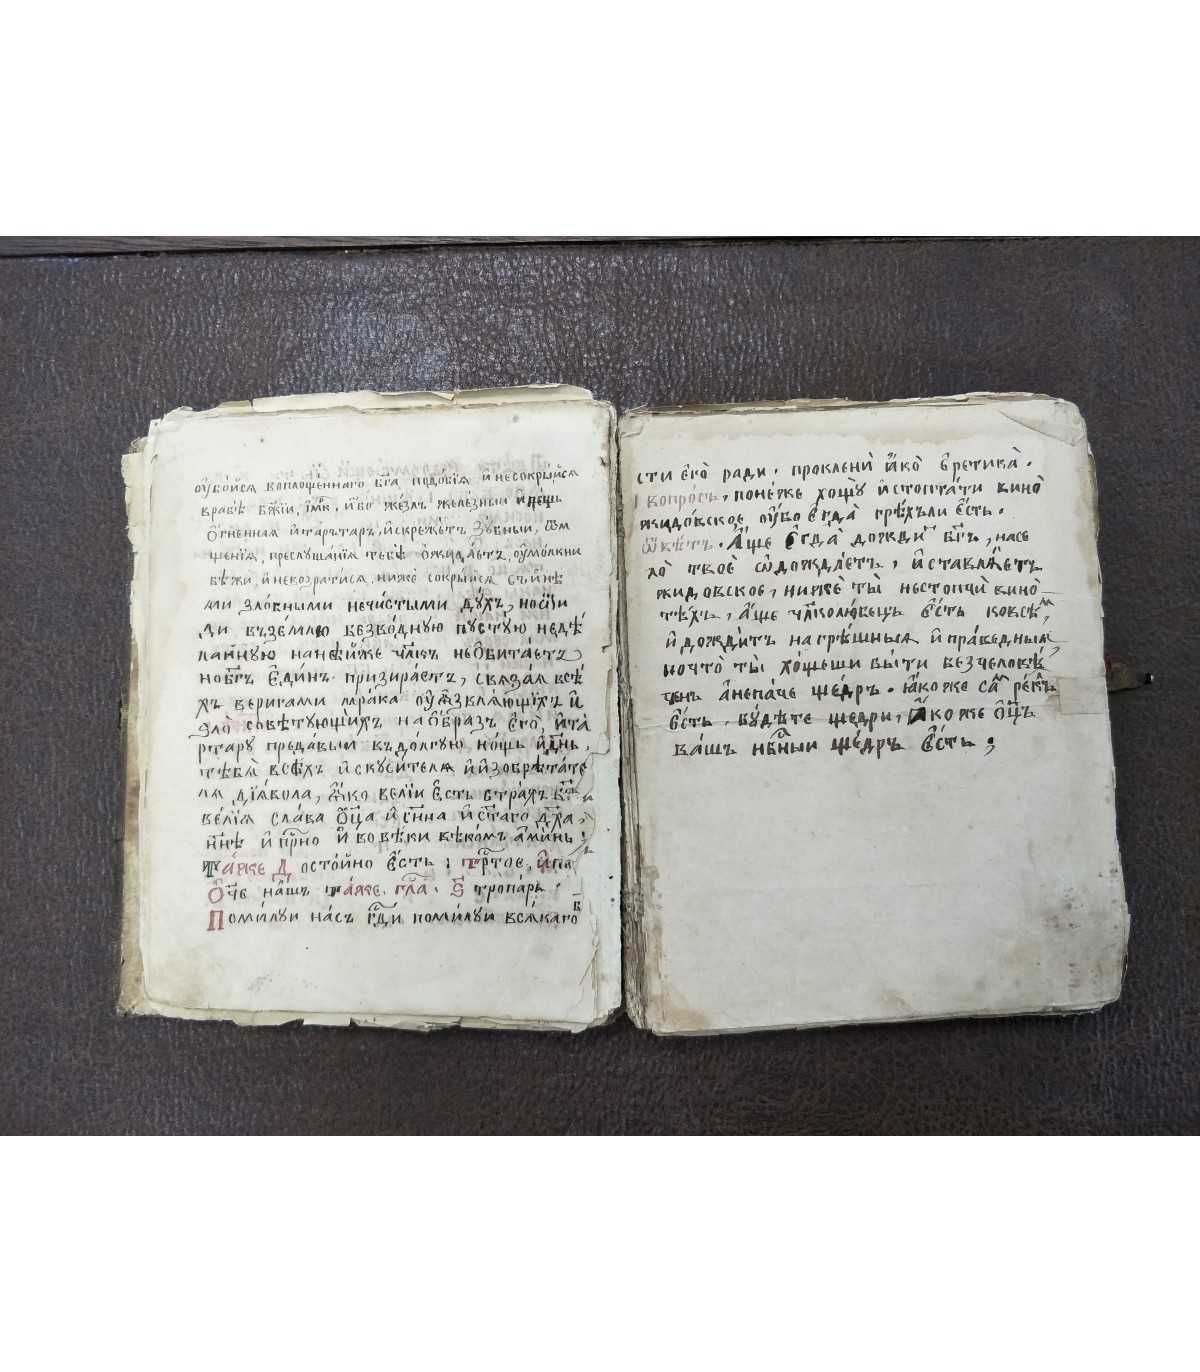 оубо́йсѧ воплоще́ннаго бг҃а подо́бїѧ и҆ несокры́йсѧ
врабѣ̀ бж҃їи, и҆м҃к, и҆́бо же́злъ желѣ́зный и҆ пе́щь
ѻ҆́гненнаѧ и҆ та́рътаръ, и҆ скре́жетъ зу́бный, ѿм
ще́нїѧ, преслуша́нїѧ тебѣ̀ ѻ҆жида́етъ, оумо́лкни
бѣжи, и҆ невозрати́сѧ, нижѐ сокры́йсѧ съ и҆нѣ
ми зло́бными нечи́стыми ду́хъ, но ѿи
ди въ зе́млю безво́дную пусту́ю недѣ́
ланную на не́йже чл҃къ не ѻ҆бита́етъ
но бг҃ъ є҆ди́нъ призира́етъ, свѧза́ѧ всѣ́
хъ вери́гами мра́ка оу҆ѧзвлѧ́ющїхъ и҆
ѕло̀ совѣ́тующихъ на ѻ҆́бразъ є҆го̀, и҆ та́
ртару преда́вый въ до́лгую но́щь и҆ дн҃ь,
тебѧ̀ всѣ́хъ и҆скуси́телѧ и҆ и҆зобрѣта́те
лѧ дїѧ́вола, ꙗ҆́ко ве́лїи є҆́сть стра́хъ бж҃їи
ве́лїѧ сла́ва ѻ҆ц҃а̀ и҆ сн҃на и҆ ст҃а́го дх҃а,
нн҃ѣ и҆ пр҃но и҆ во вѣ́ки вѣко́мъ а҆ми́нь;
та́же досто́йно є҆́сть; тр҃тое, и҆ по
ѻ҆́ч҃е на́шъ та́же. гла҃. ѕ҃ тропа́рь.
Поми́луи на́съ гд҃и поми́луи всѧ́каго
в҃
сти є҆го̀ ради. прокленѝ ꙗ҆́кѡ є҆ретика̀.
вопро́съ, поне́же хощу̀ и҆стопта́ти вино̀
жидо́вское оубо є҆гда̀ грѣ́хъ ли є҆́сть.
ѿвѣ́тъ. А҆́ще є҆гда̀ дожди́тъ бг҃ъ, насе
ло̀ твоѐ ѡ҆дожда́етъ, и҆ ставлѧ́етъ
жидо́вское, нижѐ ты̀ нестопчѝ вино̀
тѣ́хъ, а҆́ще чл҃колю́бецъ є҆́сть ковсѣ́м
и҆ дожди́тъ на грѣ́шныѧ и҆ пра́ведныѧ
почто̀ ты̀ хо́щеши бы́ти безчеловѣ́
ченъ а҆ непа́че ще́дръ. ꙗ҆́коже са́м ре́клъ
є҆́сть, бу́дѣте ще́дри, ꙗ҆́коже ѻ҆ц҃ъ
ва́шъ нб҃ный ще́дръ є҆́сть;